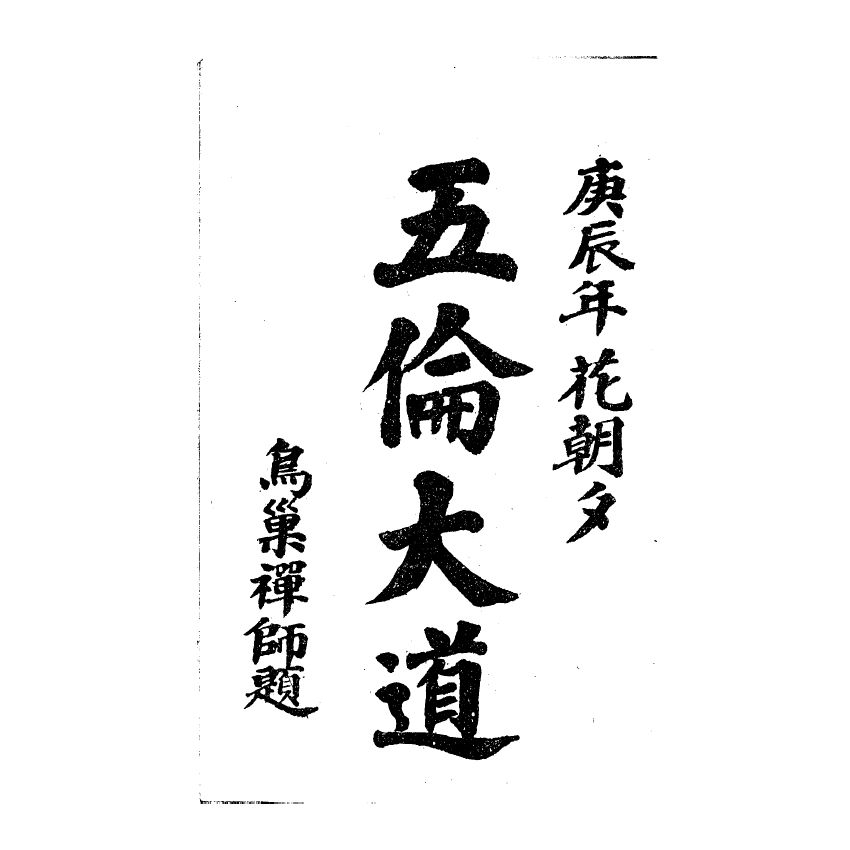 庚辰年花朝夕
五倫大道
鳥巢禪師題